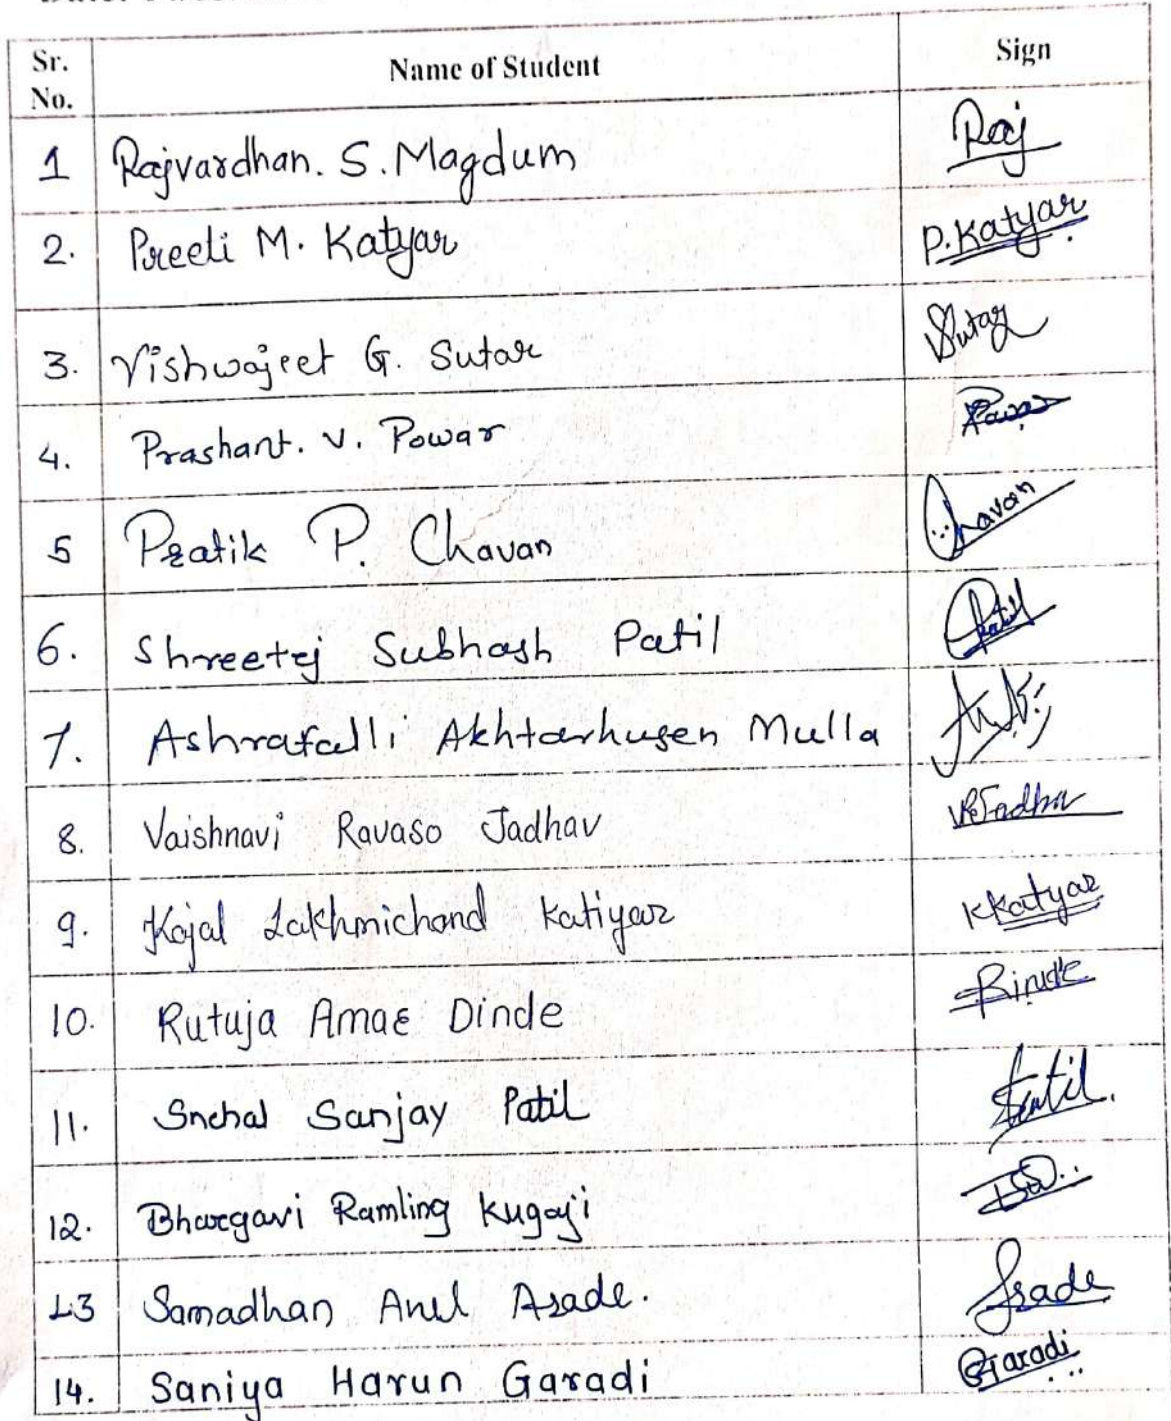 Sr. No. Name of Student Sign
1 Rajvardhan. S. Magdum Raj
2. Preeti M. Katyar P.Katyar
3. Vishwajeet G. Sutar Sutar
4. Prashant. V. Powar
5 Pratik P. Chavan Chavan
6. Shreetej Subhash Patil Patil
7. Ashrafalli Akhtarhusen Mulla
8. Vaishnavi Ravaso Jadhav VRJadhav
9. Kajal Lakhmichand Katiyar KKatyar
10. Rutuja Amar Dinde
11. Snehal Sanjay Patil
12. Bhargavi Ramling Kugaji
13 Samadhan Anil Asade. Asade
14. Saniya Harun Garadi Garadi